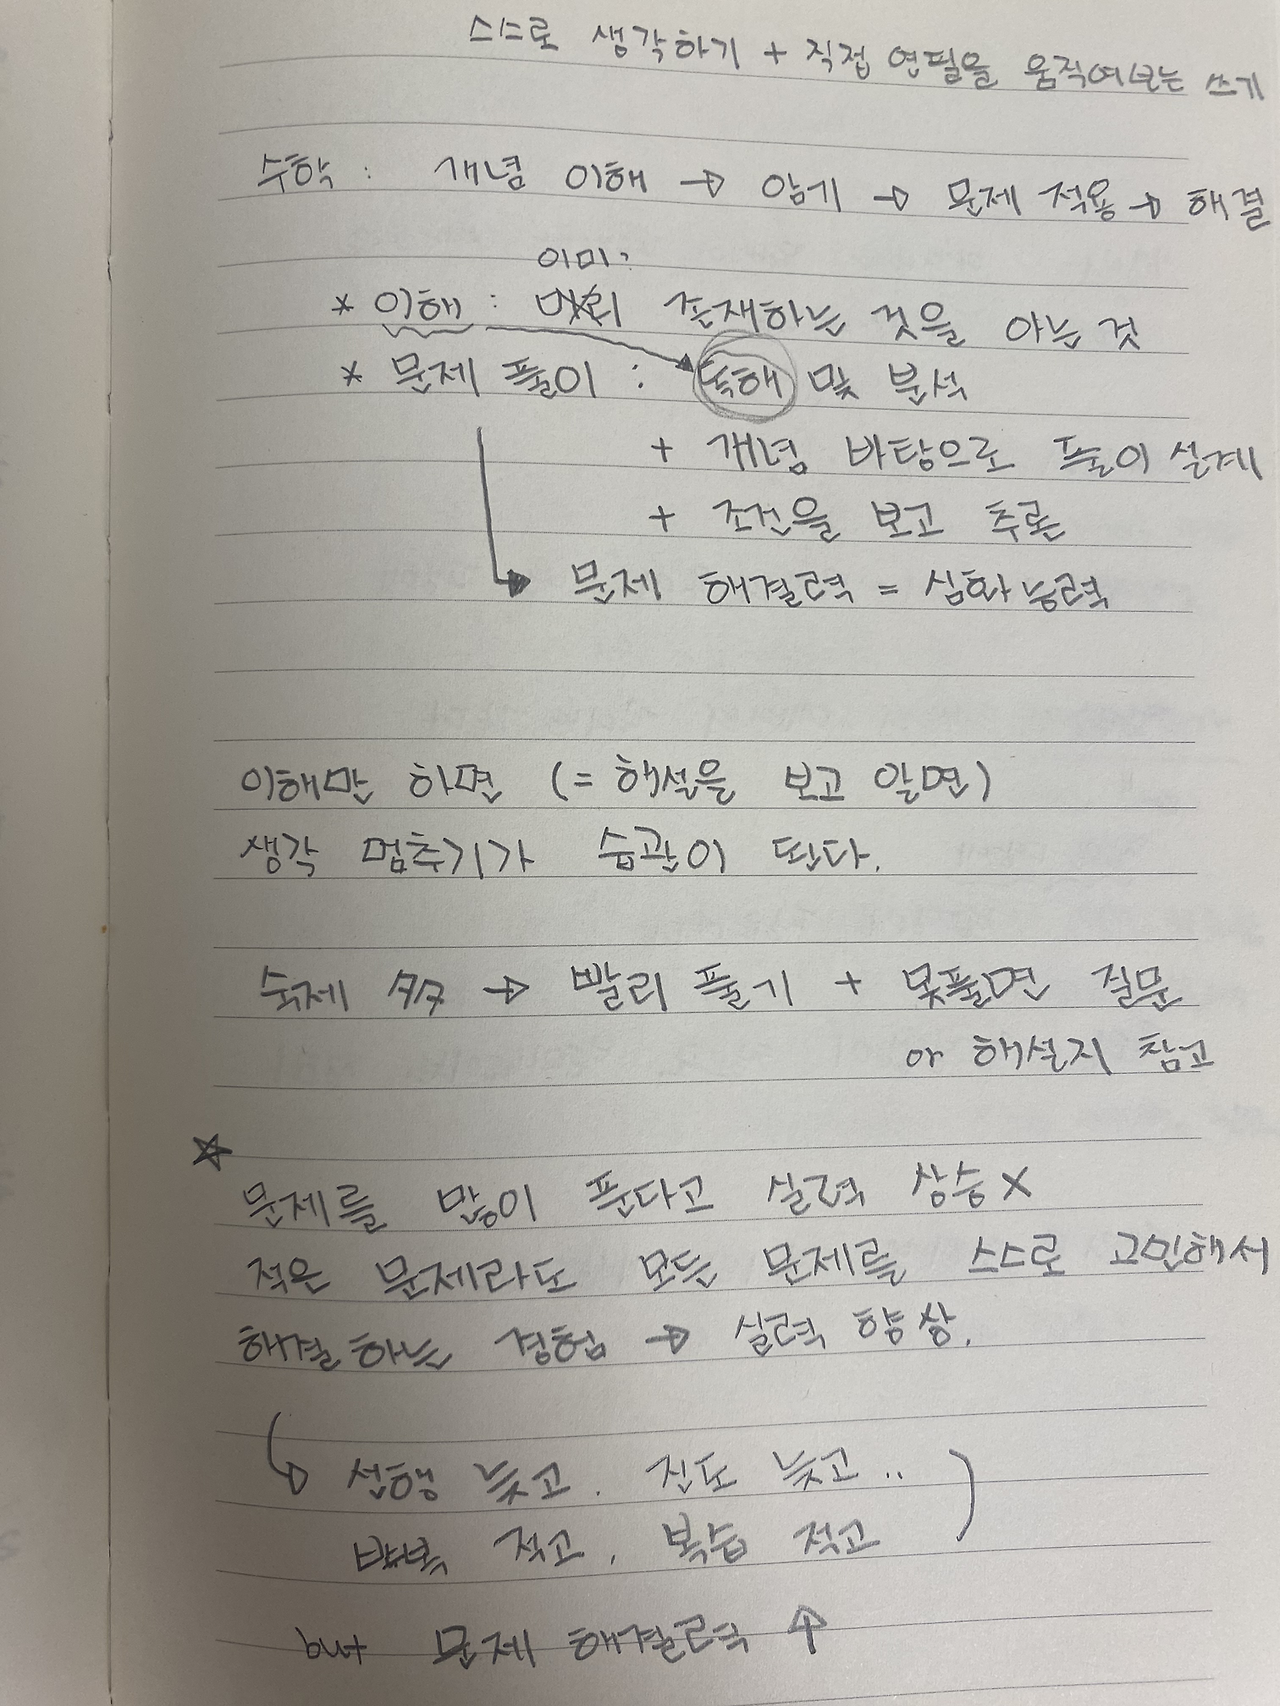 스스로 생각하기 + 직접 연필을 움직여보는 쓰기
수학 : 개념 이해 → 암기 → 문제 적용 → 해결
이미?
* 이해 : 존재하는 것을 아는 것
* 문제 풀이 : 독해 및 분석
+ 개념 바탕으로 풀이 설계
+ 조건을 보고 추론
문제 해결력 = 심화능력
이해만 하면 (= 해설을 보고 알면)
생각 멈추기가 습관이 된다.
숙제 多多 → 빨리 풀기 + 못풀면 질문
or 해설지 참고
☆
문제를 많이 푼다고 실력 상승 X
적은 문제라도 모든 문제를 스스로 고민해서
해결하는 경험 → 실력 향상.
↳ 선행 늦고. 진도 늦고..
반복 적고. 복습 적고 )
but 문제 해결력 ↑